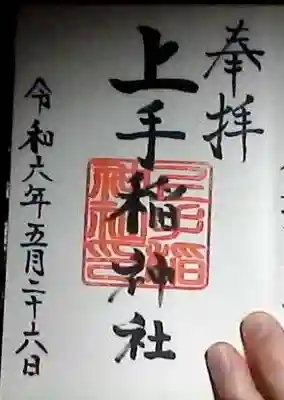 奉拝
上手稲神社
令和六年五月二十六日